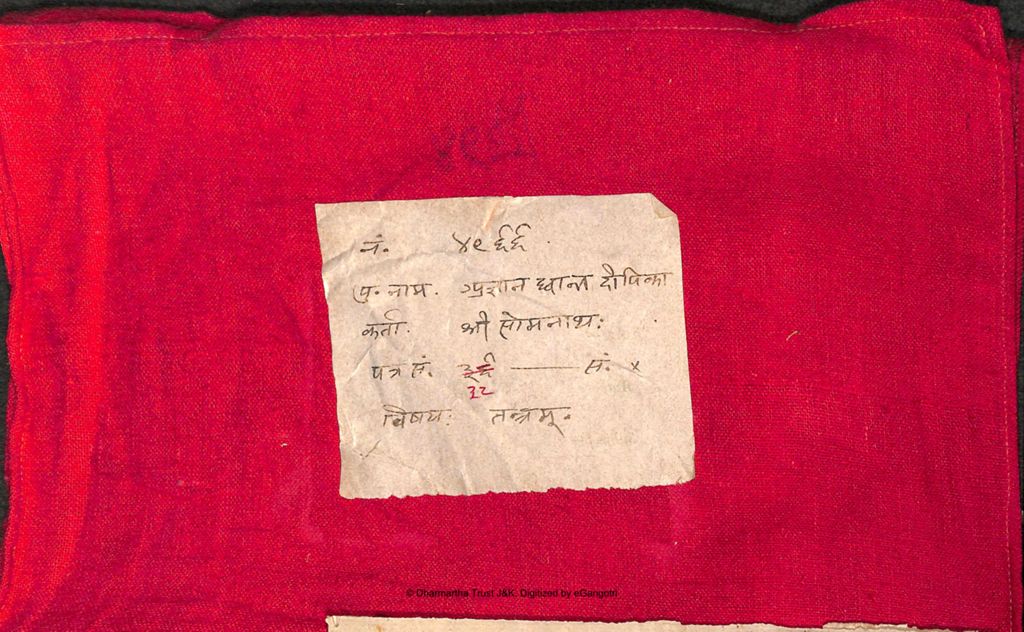 नं. ४९६६
पु. नाम. अज्ञान ध्वान्त दीपिका
कर्ता. श्री सोमनाथः
पत्र सं. ३६ —— सं. ×
३२
विषयः तन्त्रम्.
© Dharmartha Trust J&K. Digitized by eGangotri